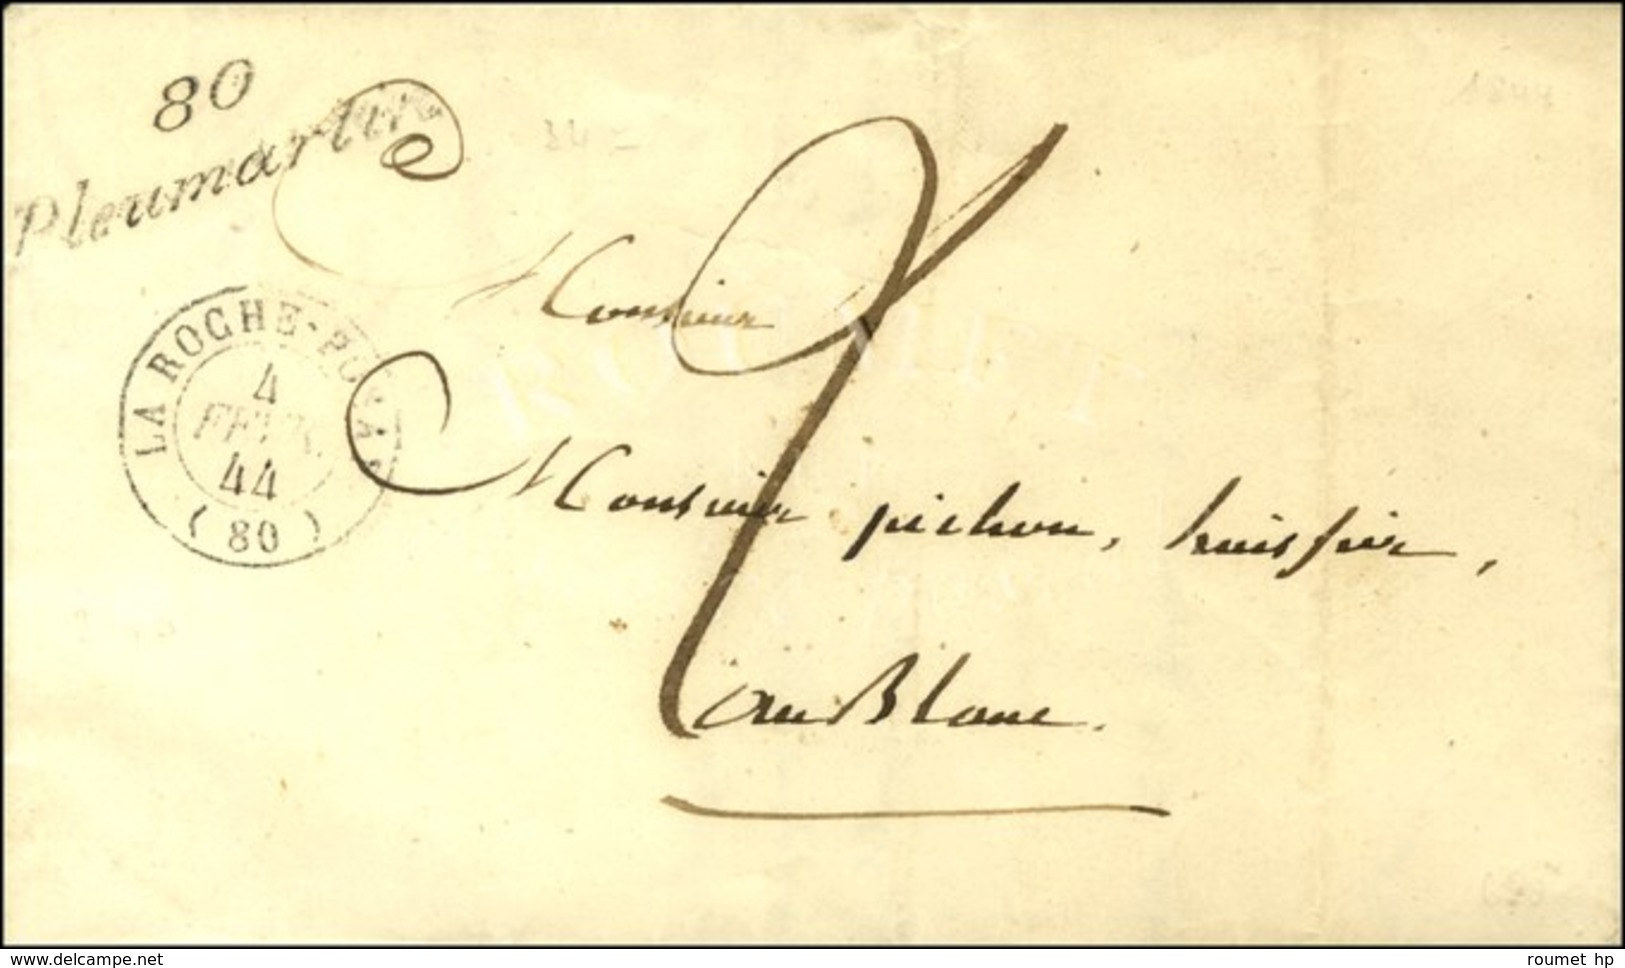 80
Pleumartin
1844
24 -
LA ROCHE-POSAY
4
FEVR.
44
(80)
2
Monsieur
Monsieur pichon, huissier,
au Blanc.
ROUMET
delcampe.net
roumet hp